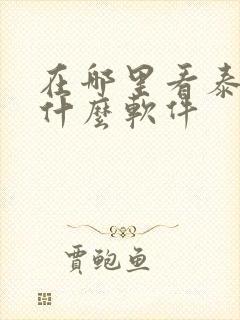 在哪里看泰
什麼軟件
賈鲍鱼